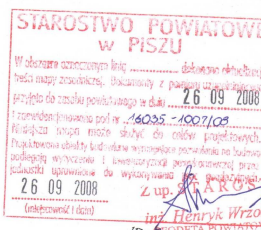 STAROSTWO POWIATOWE
w PISZU
W obszarze oznaczonym linią ........ dokonano aktualizacji
treści mapy zasadniczej. Dokumenty z pomiaru
przyjęto do zasobu powiatowego w dniu 26 09 2008
i zewidencjonowano pod nr 16035-1007/08
Niniejsza mapa może służyć do celów projektowych.
Projektowane obiekty budowlane wymagające pozwolenia na budowę
podlegają wytyczeniu i inwentaryzacji powykonawczej przez
jednostki uprawnione do wykonywania
26 09 2008
Z up. STAROS
(miejscowość i data)
inż. Henryk Wrzo
GEODETA POWIATO